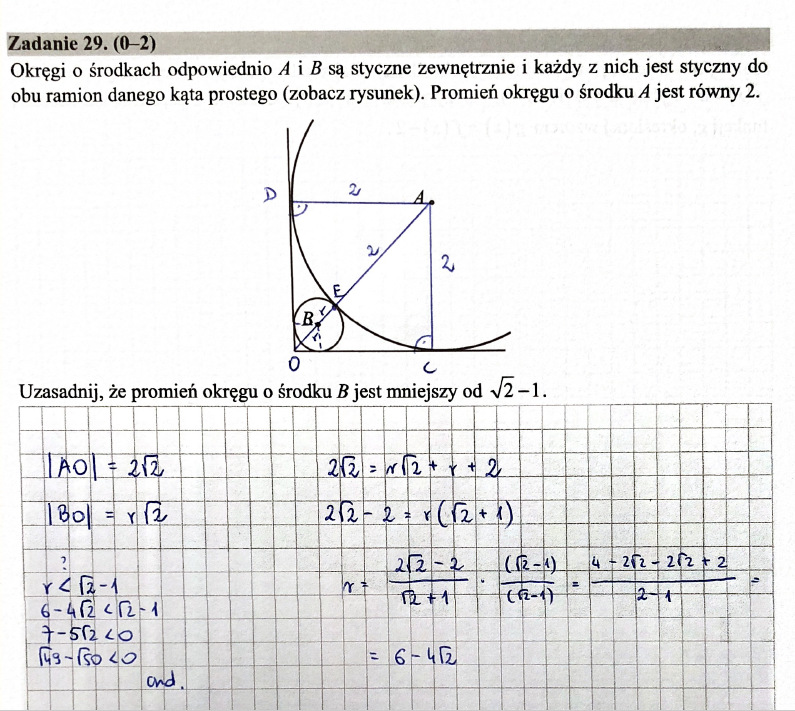 Zadanie 29. (0–2)
Okręgi o środkach odpowiednio A i B są styczne zewnętrznie i każdy z nich jest styczny do
obu ramion danego kąta prostego (zobacz rysunek). Promień okręgu o środku A jest równy 2.
D
2
A
2
2
E
r
B
r
O
C
Uzasadnij, że promień okręgu o środku B jest mniejszy od √2–1.
|AO| = 2√2
|BO| = r√2
?
r < √2-1
6-4√2 < √2-1
7-5√2 < 0
√49-√50 < 0
cnd.
2√2 = r√2 + r + 2
2√2 - 2 = r(√2 + 1)
r = (2√2 - 2)/(√2 + 1) · (√2-1)/(√2-1) = (4 - 2√2 - 2√2 + 2)/(2-1) =
= 6 - 4√2